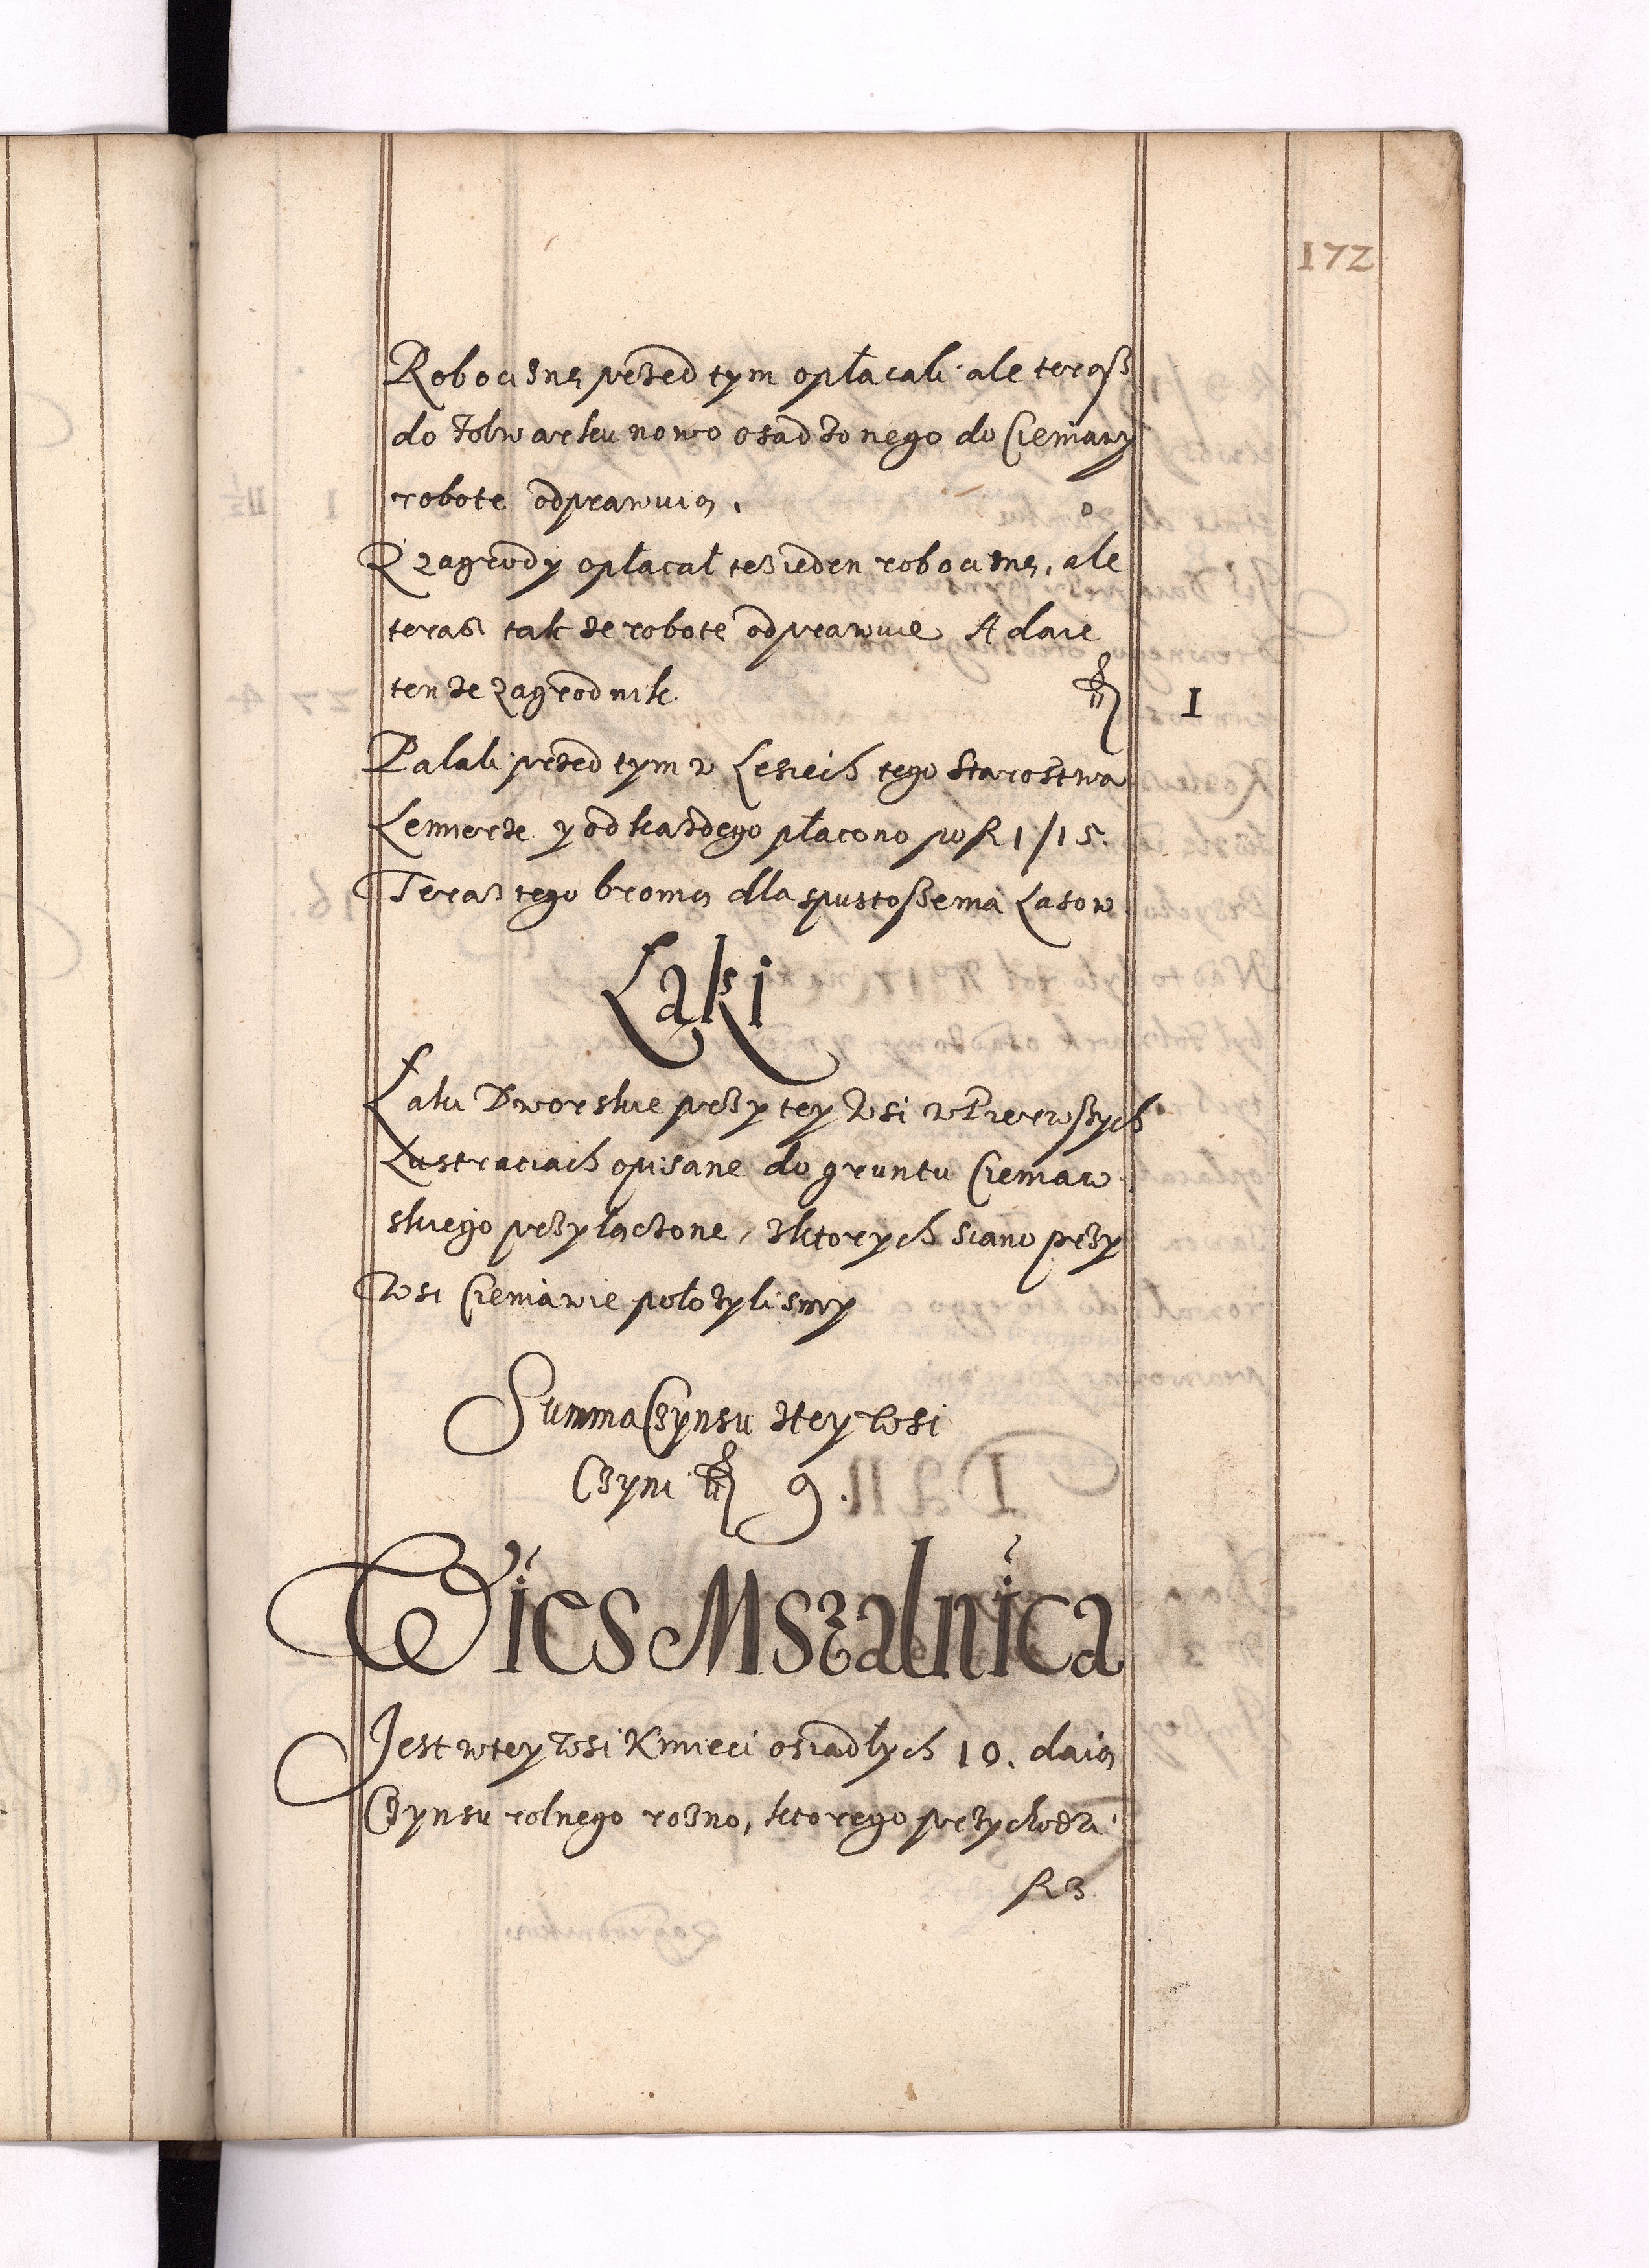 172
Robociznę przed tym opłacali ale terasz
do folwarku nowo osadzonego do Cieniawy
robote odprawuią.
Z zagrody opłacał tez ieden robociznę, ale
teraz takze robote odprawuie A daie
tenze zagrodnik. 1
Palali przed tym w Lesiech tego Starostwa
Kemierze y od kazdego płacono po fl 1/15.
Teraz tego bronią dla spustoszenia Lasow
Łąki
Łąki Dworskie przy tey Wsi w Pierwszych
Lustraciach opisane do gruntu Cieniaw
skiego przyłączone, z ktorych siano przy
Wsi Cieniawie połozylismy
Summa Czynsu z tey Wsi
Czyni 9.
Wies Mszalnica
Jest w tey Wsi Kmieci osiadłych 10. daią
Czynsu rolnego rozno, ktorego przychodzi
fl 3